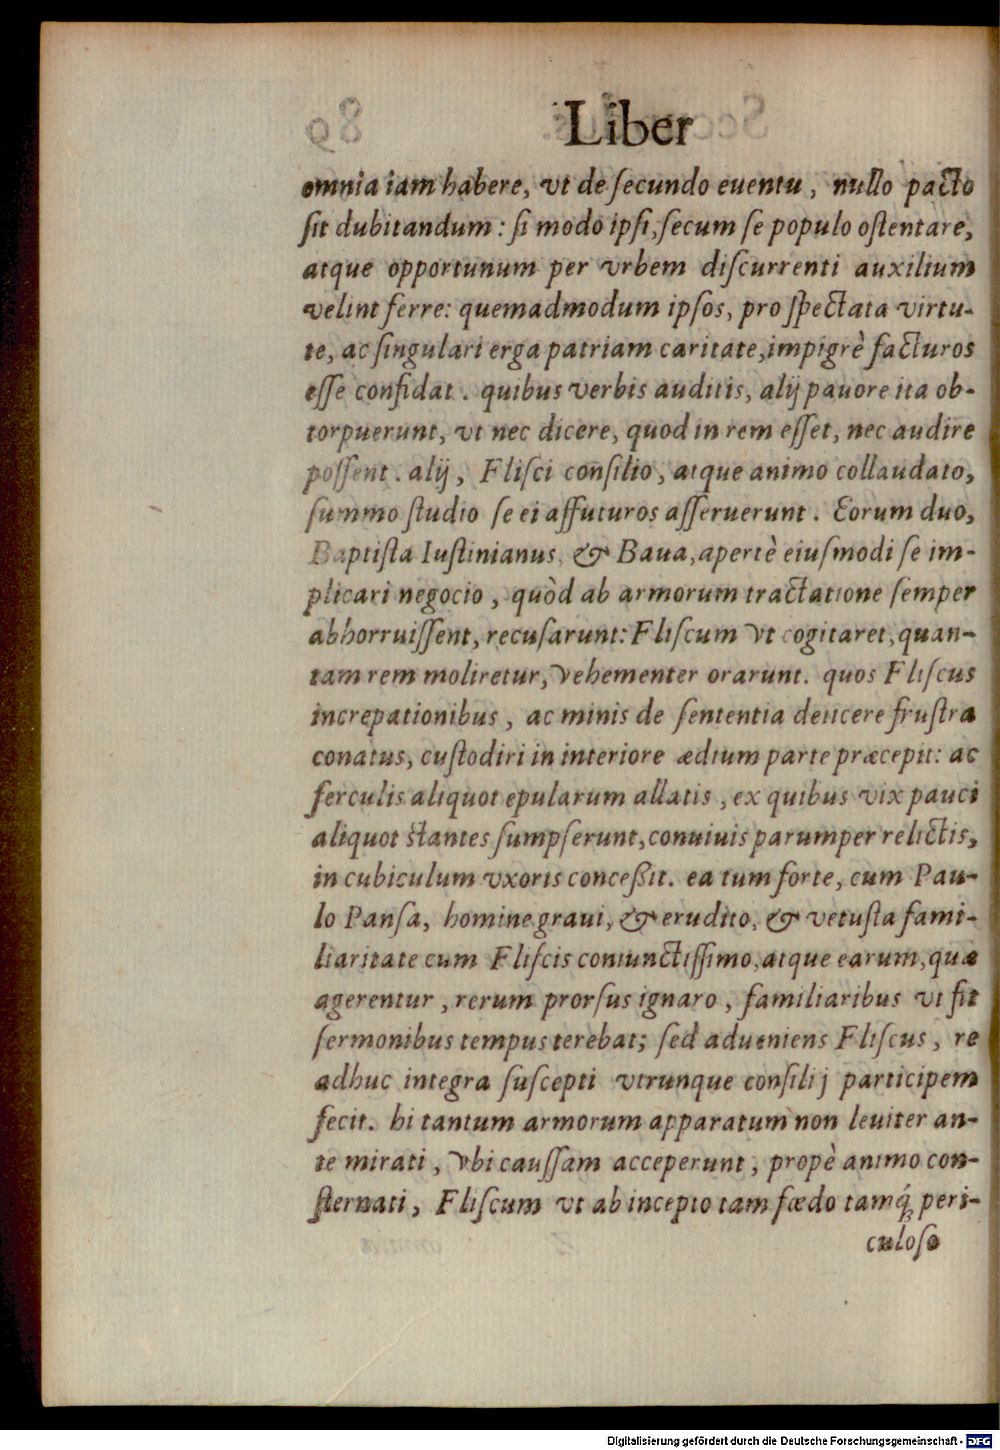 Liber
omnia iam habere, vt de ſecundo euentu, nullo pacto
ſit dubitandum: ſi modo ipſi, ſecum ſe populo oſtentare,
atque opportunum per vrbem diſcurrenti auxilium
velint ferre: quemadmodum ipſos, pro ſpectata virtu-
te, ac ſingulari erga patriam caritate, impigrè facturos
eſſe confidat. quibus verbis auditis, alij pauore ita ob-
torpuerunt, vt nec dicere, quod in rem eſſet, nec audire
poſſent. alij, Fliſci conſilio, atque animo collaudato,
ſummo ſtudio ſe ei affuturos aſſeruerunt. Eorum duo,
Baptiſta Iuſtinianus, & Baua, apertè eiuſmodi ſe im-
plicari negocio, quòd ab armorum tractatione ſemper
abhorruiſſent, recuſarunt: Fliſcum vt cogitaret, quan-
tam rem moliretur, vehementer orarunt. quos Fliſcus
increpationibus, ac minis de ſententia deiicere fruſtra
conatus, cuſtodiri in interiore ædium parte præcepit: ac
ferculis aliquot epularum allatis, ex quibus vix pauci
aliquot ſtantes ſumpſerunt, conuiuis parumper relictis,
in cubiculum vxoris conceßit. ea tum forte, cum Pau-
lo Panſa, homine graui, & erudito, & vetuſta fami-
liaritate cum Fliſcis coniunctiſſimo, atque earum, quæ
agerentur, rerum prorſus ignaro, familiaribus vt fit
ſermonibus tempus terebat; ſed adueniens Fliſcus, re
adhuc integra ſuſcepti vtrunque conſilij participem
fecit. hi tantum armorum apparatum non leuiter an-
te mirati, vbi cauſſam acceperunt, propè animo con-
ſternati, Fliſcum vt ab incepto tam fœdo tamq́; peri-
culoſo
Digitalisierung gefördert durch die Deutsche Forschungsgemeinschaft - DFG